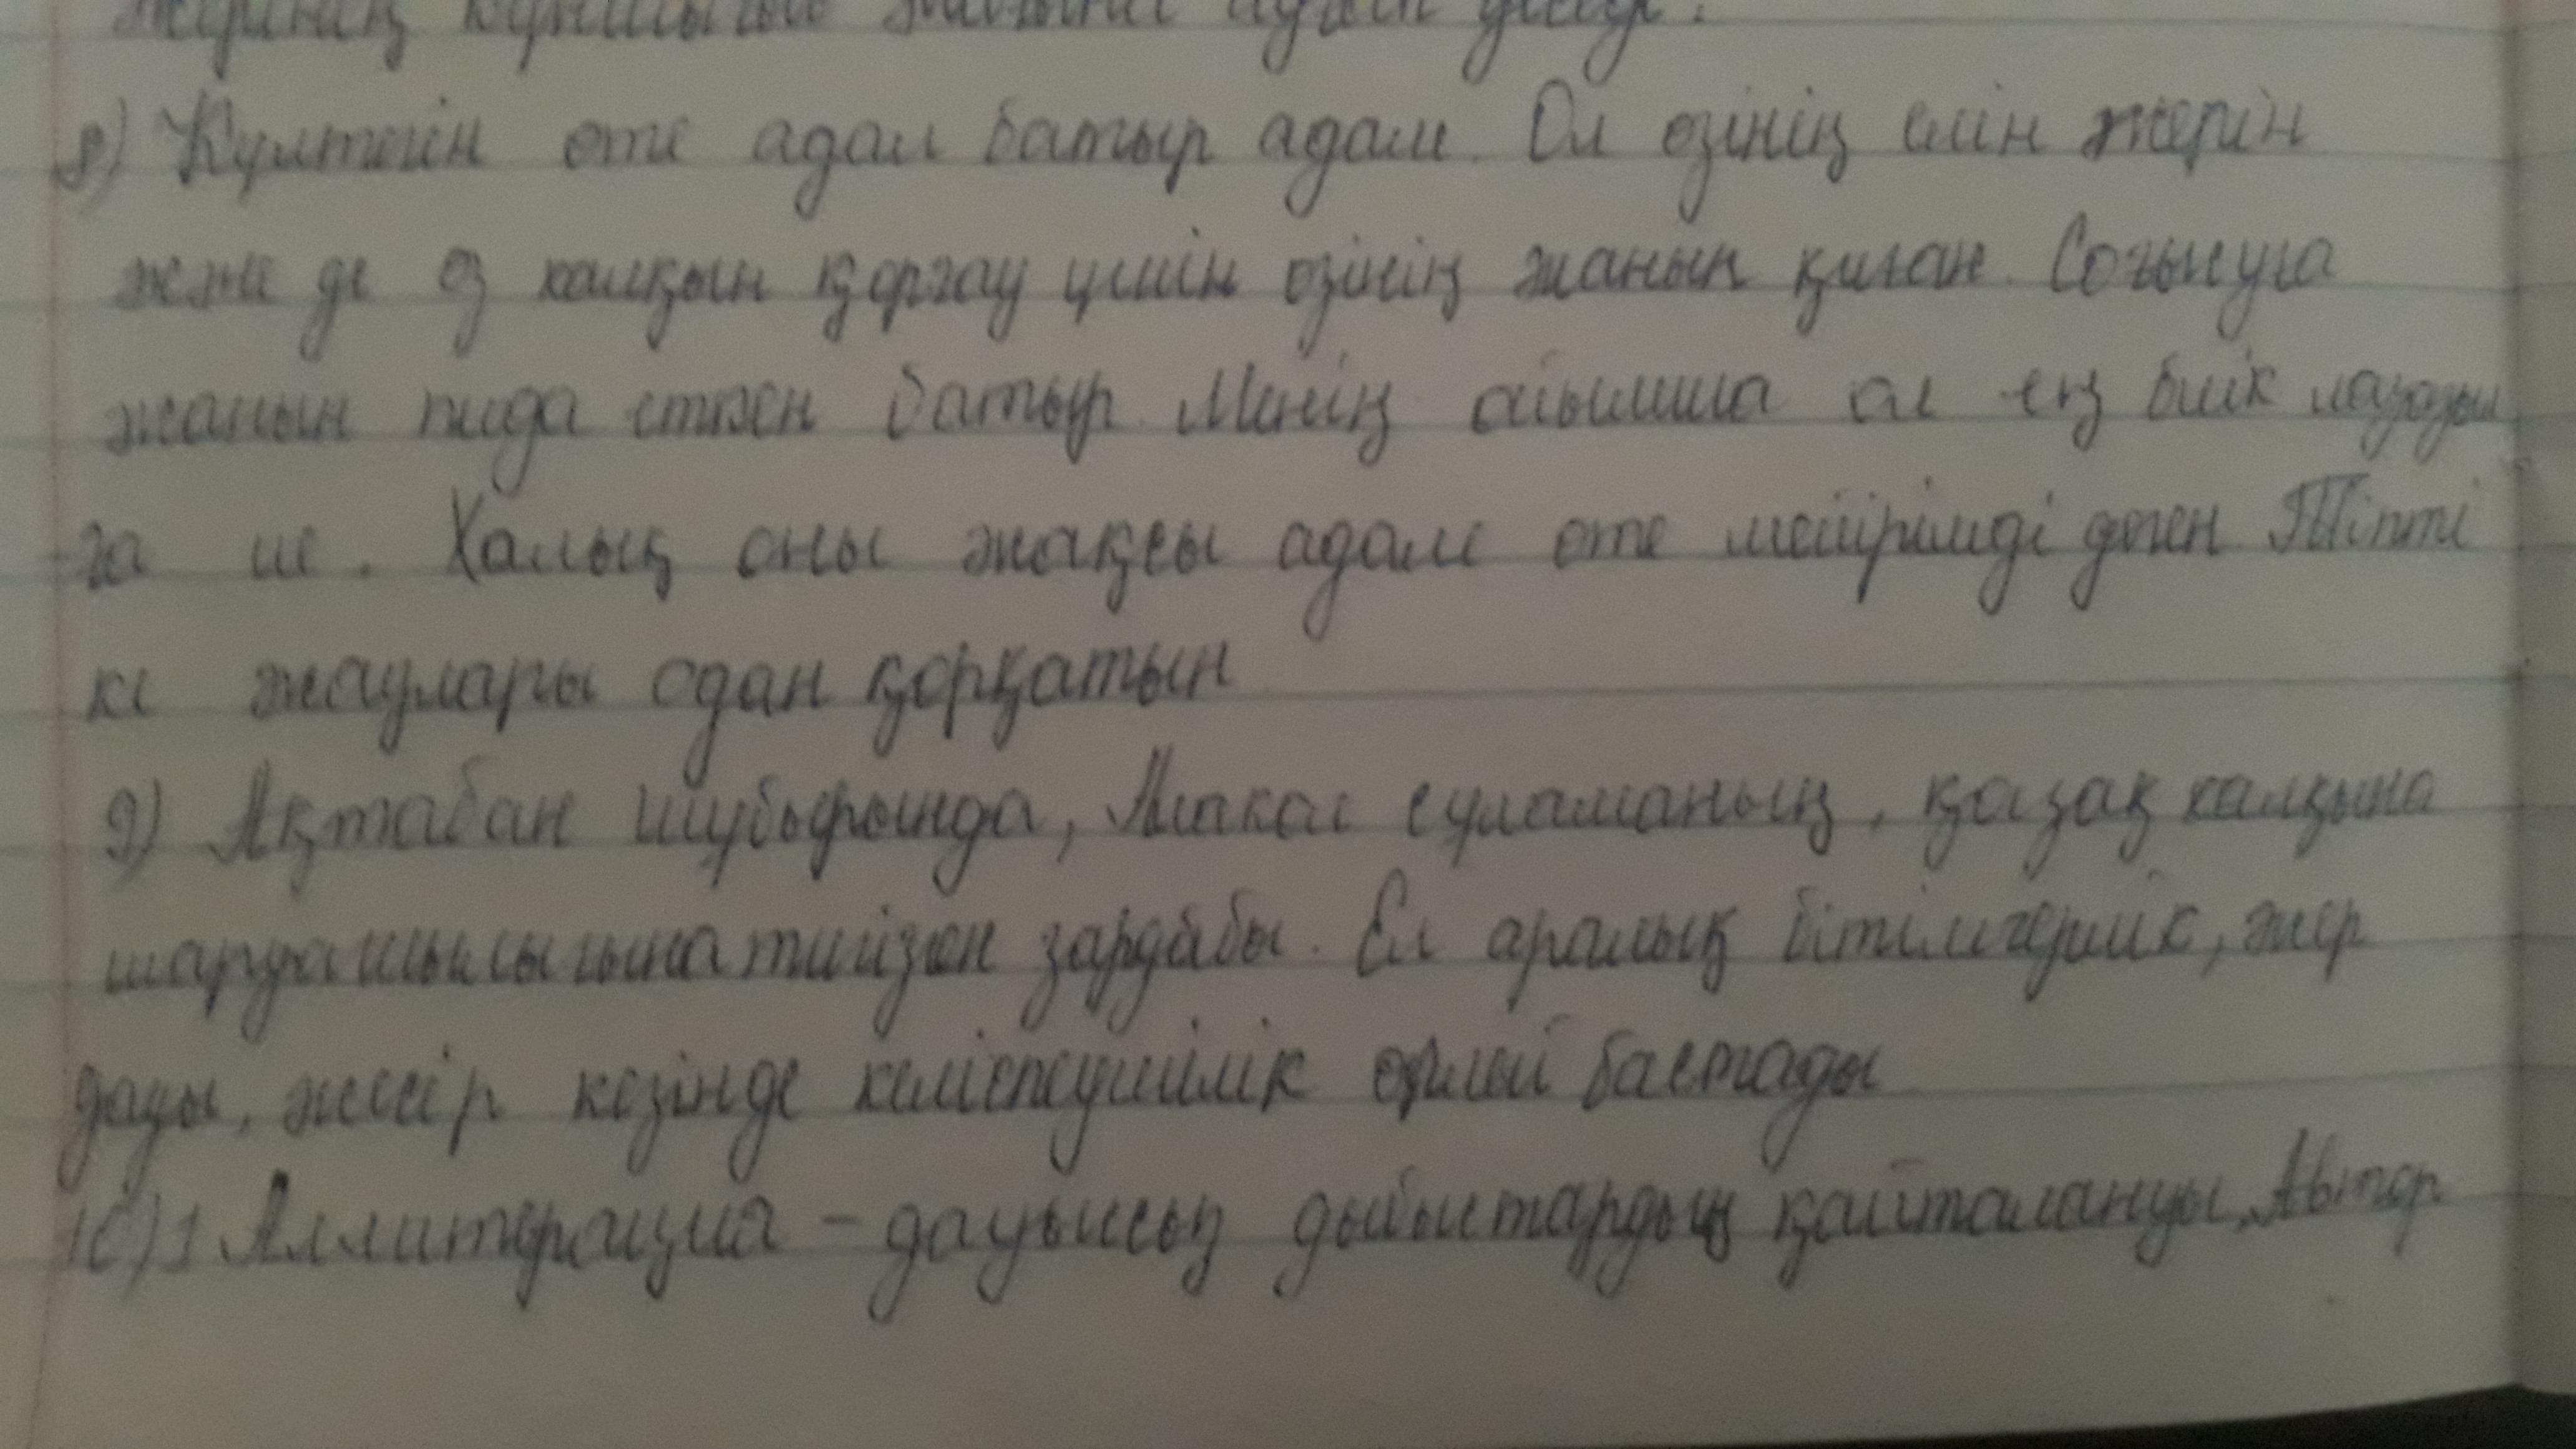 8) Күлтегін өте адал батыр адам. Ол өзінің елін жерін
және де өз халқын қорғау үшін өзінің жанын қиған. Соғысуға
жанын пида еткен батыр. Менің ойымша ол ең биік лауазым
ға ие. Халық оны жақсы адам өте мейірімді деген Тіпті
кі жаулары одан қорқатын
9) Ақтабан шұбырында, Алакөл сұламаның, қазақ халқына
шаруашылығына тигізген зардабы. Ел аралық бітімгерлік, жер
дауы, жесір кезінде келіспеушілік өршей бастады
10) 1 Аллитерация – дауыссыз дыбыстардың қайталануы, Автор